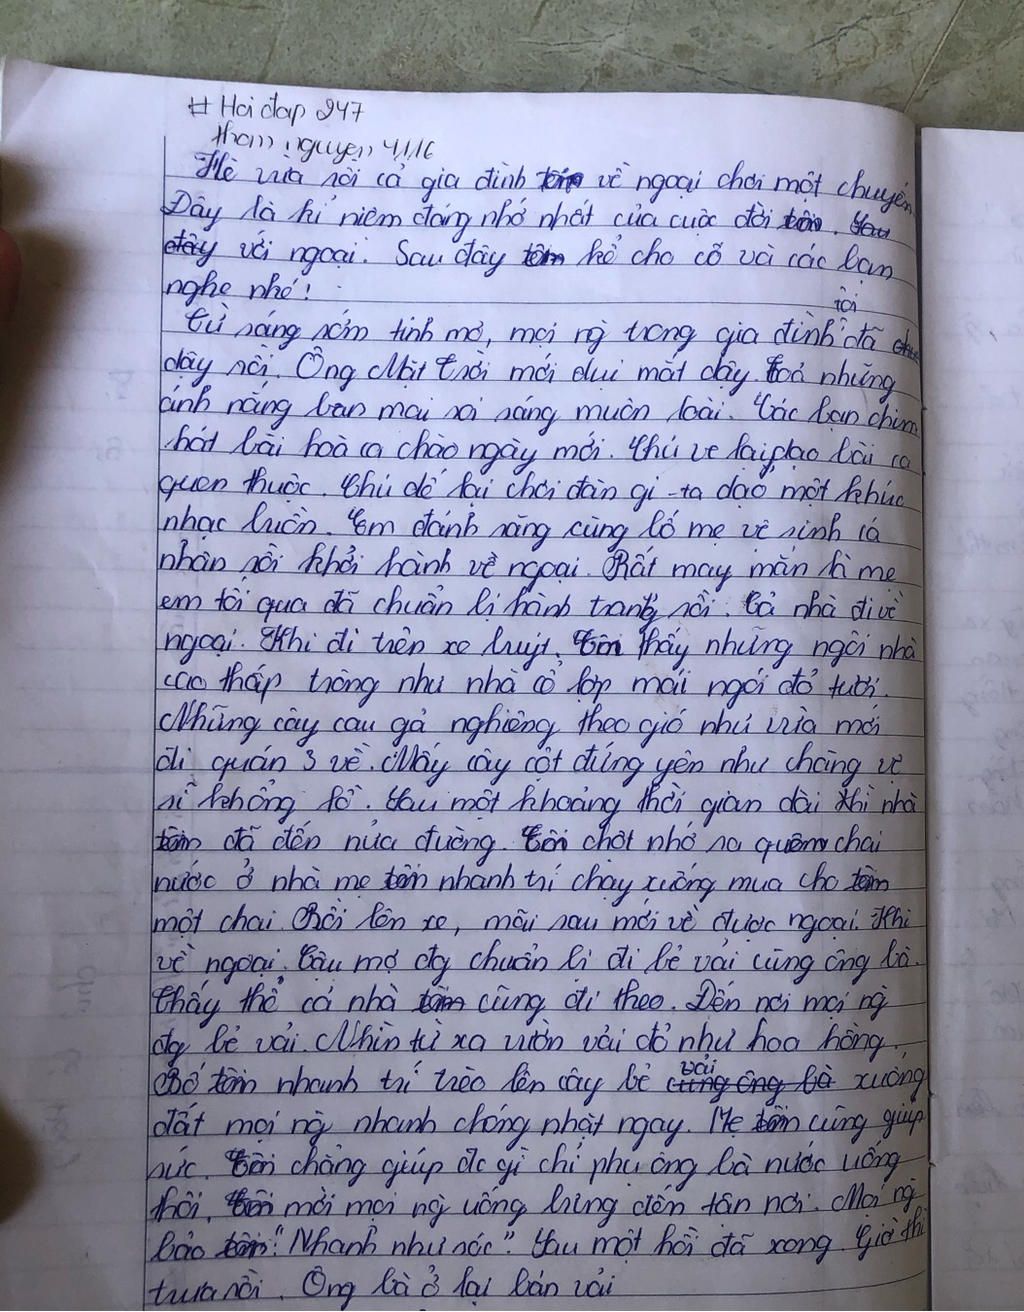 # Hoi đap 247
tham nguyen 4116
Hè vừa rồi cả gia đình tôi về ngoại chơi một chuyến
Đây là kỉ niệm đáng nhớ nhất của cuộc đời tôi. Sau
đây với ngoại. Sau đây tôi kể cho cô và các bạn
nghe nhé!
Từ sáng sớm tinh mơ, mọi ng trong gia đình tôi đã
dậy rồi. Ông Mặt Trời mới dụi mắt dậy toả những
ánh nắng ban mai soi sáng muôn loài. Các bạn chim
hát bài hoà ca chào ngày mới. Chú ve lại dạo bài ca
quen thuộc. Chú dế lại chơi đàn gi-ta dạo một khúc
nhạc buồn. Em đánh răng cùng bố mẹ vệ sinh cá
nhân rồi khởi hành về ngoại. Rất may mắn là mẹ
em tối qua đã chuẩn bị hành trang rồi. Cả nhà đi về
ngoại. Khi đi trên xe buýt, tôi thấy những ngôi nhà
cao thấp trông như nhà cổ lợp mái ngói đỏ tươi.
Những cây cau gả nghiêng theo gió như vừa mới
đi quán 3 về. Mấy cây cột đứng yên như chàng vệ
sĩ khổng lồ. Sau một khoảng thời gian dài thì nhà
tôi đã đến nửa đường. Tôi chợt nhớ ra quên chai
nước ở nhà mẹ tôi nhanh trí chạy xuống mua cho tôi
một chai. Rồi lên xe, mãi sau mới về được ngoại. Khi
về ngoại. Cậu mợ đg chuẩn bị đi bẻ vải cùng ông bà.
Thấy thế cả nhà tôi cũng đi theo. Đến nơi mọi ng
đg bẻ vải. Nhìn từ xa vườn vải đỏ như hoa hồng.
Bố tôi nhanh trí trèo lên cây bẻ cùng ông bà vải xuống
đất mọi ng nhanh chóng nhặt ngay. Mẹ tôi cũng giúp
sức. Tôi chẳng giúp đc gì chỉ phụ ông bà nước uống
thôi. Tôi mời mọi ng uống bưng đến tận nơi. Mọi ng
bảo tôi: "Nhanh như sóc". Sau một hồi đã xong. Giờ thì
trưa rồi. Ông bà ở lại bán vải